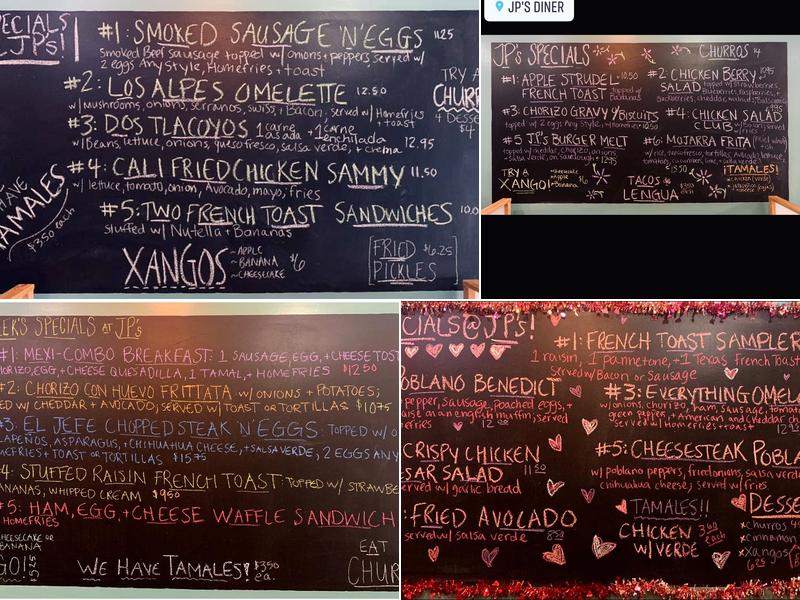 PECIALS
JPs!
#1: SMOKED SAUSAGE 'N' EGGS 11.25
smoked Beef sausage topped w/ onions + peppers, served w/
2 eggs Any Style, Homefries + toast
#2: LOS ALPES OMELETTE 12.50
w/ mushrooms, onions, serranos, swiss, + Bacon, served w/ Homefries
+ toast
#3: DOS TLACOYOS 1 carne asada + 1 carne enchilada
w/ Beans, lettuce, onions, queso fresco, salsa verde, + crema 12.95
#4: CALI FRIED CHICKEN SAMMY 11.50
w/ lettuce, tomato, onion, Avocado, mayo; fries
#5: TWO FRENCH TOAST SANDWICHES 10.0
stuffed w/ Nutella + Bananas
XANGOS ~APPLE
~BANANA
~CHEESECAKE $6
FRIED $6.25
PICKLES
TRY A
CHUR
4 Desse
$4
HAVE
TAMALES
$3.50 each
JP'S DINER
JP'S SPECIALS
CHURROS
#1: APPLE STRUDEL 10.50
FRENCH TOAST topped w/ Bananas
#2: CHICKEN BERRY
SALAD topped w/ strawberries,
#3: CHORIZO GRAVY 'N' BISCUITS
topped w/ 2 eggs Any style, w/ Homefries
#4: CHICKEN SALAD
CLUB
#5 JP'S BURGER MELT
topped w/ cheddar, chorizo, onions
#6: MOJARRA FRITA
TRY A
XANGO!
TACOS de
LENGUA
¡TAMALES!
EK'S SPECIALS at JP's
#1: MEXI-COMBO BREAKFAST: 1 SAUSAGE, EGG, + CHEESE TOST
HORIZO, EGG, + CHEESE QUESADILLA, 1 TAMAL, + HOMEFRIES $12.50
#2: CHORIZO CON HUEVO FRITTATA w/ ONIONS + POTATOES;
ED w/ CHEDDAR + AVOCADO; SERVED w/ TOAST OR TORTILLAS $10.75
#3: EL JEFE CHOPPED STEAK N' EGGS: TOPPED w/ O
LAPEÑOS, ASPARAGUS, + CHIHUAHUA CHEESE, + SALSA VERDE, 2 EGGS ANY
MEFRIES + TOAST OR TORTILLAS $15.75
4: STUFFED RAISIN FRENCH TOAST: TOPPED w/ STRAWBE
ANANAS, WHIPPED CREAM $9.60
5: HAM, EGG, + CHEESE WAFFLE SANDWICH
HOMEFRIES
CHEESECAKE OR
BANANA
GO! $5.25
WE HAVE TAMALES! $3.50
ea.
EAT
CHUR
CIALS@JPs!
#1: FRENCH TOAST SAMPLER
1 raisin, 1 pannetone, + 1 Texas French Toast
Served w/ Bacon or Sausage
OBLANO BENEDICT
pepper, sausage, poached eggs, +
aise on an english muffin; served
erries 12
#3: EVERYTHING OMELE
w/ onions, chorizo, ham, sausage, tomato
green pepper, + American and cheddar ch
served w/ Homefries + toast
CRISPY CHICKEN
SAR SALAD 11.50
erved w/ garlic bread
#5: CHEESESTEAK POBLA
w/ poblano peppers, fried onions, salsa verde
chihuahua cheese; served w/ fries
: FRIED AVOCADO
served w/ salsa verde 8
TAMALES!!
CHICKEN 3.60
w/ VERDE each
DESSE
×churros
×cinnamon
×Xangos